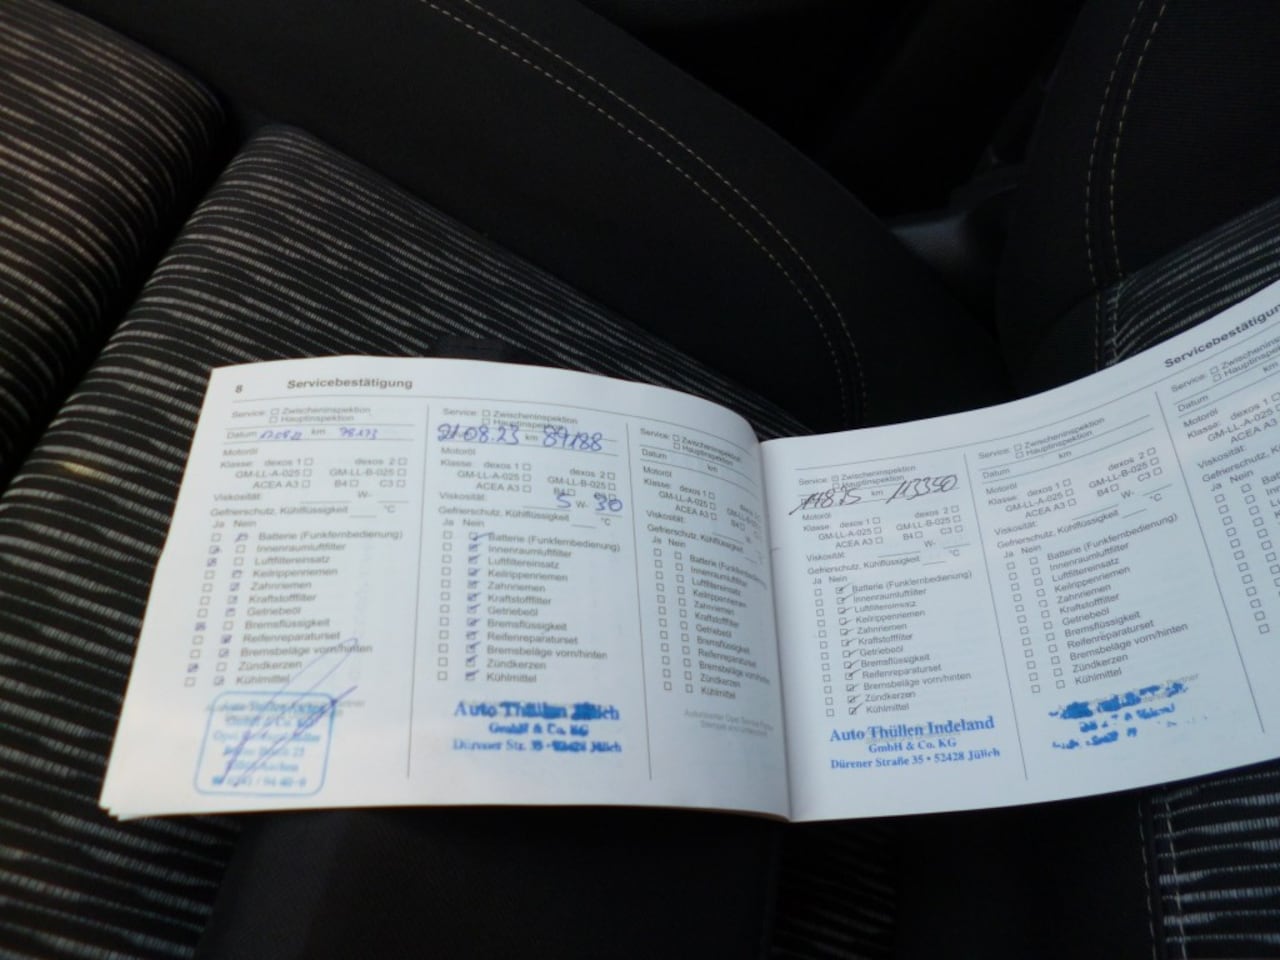 8 Servicebestätigung
Service: ☐ Zwischeninspektion
☐ Hauptinspektion
Datum km 78173
Motoröl
Klasse: dexos 1 ☐ dexos 2 ☐
GM-LL-A-025 ☐ GM-LL-B-025 ☐
ACEA A3 ☐ B4 ☐ C3 ☐
Viskosität: W-
Gefrierschutz, Kühlflüssigkeit °C
Ja Nein
Batterie (Funkfernbedienung)
Innenraumluftfilter
Luftfiltereinsatz
Keilrippenriemen
Zahnriemen
Kraftstofffilter
Getriebeöl
Bremsflüssigkeit
Reifenreparaturset
Bremsbeläge vorn/hinten
Zündkerzen
Kühlmittel
Service: ☐ Zwischeninspektion
☐ Hauptinspektion
21.08.23 km 89188
Motoröl
Klasse: dexos 1 ☐ dexos 2 ☐
GM-LL-A-025 ☐ GM-LL-B-025 ☐
ACEA A3 ☐ B4 ☐
Viskosität: 5 W- 30
Gefrierschutz, Kühlflüssigkeit °C
Ja Nein
Batterie (Funkfernbedienung)
Innenraumluftfilter
Luftfiltereinsatz
Keilrippenriemen
Zahnriemen
Kraftstofffilter
Getriebeöl
Bremsflüssigkeit
Reifenreparaturset
Bremsbeläge vorn/hinten
Zündkerzen
Kühlmittel
Auto Thüllen Jülich
GmbH & Co. KG
Dürener Str. 35 • 52428 Jülich
Service: ☐ Zwischeninspektion
☐ Hauptinspektion
Datum km
Motoröl
Klasse: dexos 1 ☐
GM-LL-A-025 ☐
ACEA A3 ☐ B4 ☐
Viskosität:
Gefrierschutz, Kühlflüssigkeit
Ja Nein
Batterie
Innenraumluftfilter
Luftfiltereinsatz
Keilrippenriemen
Zahnriemen
Kraftstofffilter
Getriebeöl
Bremsflüssigkeit
Reifenreparaturset
Bremsbeläge vorn/hinten
Zündkerzen
Kühlmittel
Service: ☐ Zwischeninspektion
☐ Hauptinspektion
km 113350
Motoröl
Klasse: dexos 1 ☐ dexos 2 ☐
GM-LL-A-025 ☐ GM-LL-B-025 ☐
ACEA A3 ☐ B4 ☐ C3 ☐
Viskosität: W-
Gefrierschutz, Kühlflüssigkeit °C
Ja Nein
Batterie (Funkfernbedienung)
Innenraumluftfilter
Luftfiltereinsatz
Keilrippenriemen
Zahnriemen
Kraftstofffilter
Getriebeöl
Bremsflüssigkeit
Reifenreparaturset
Bremsbeläge vorn/hinten
Zündkerzen
Kühlmittel
Auto Thüllen Indeland
GmbH & Co. KG
Dürener Straße 35 • 52428 Jülich
Service: ☐ Zwischeninspektion
☐ Hauptinspektion
Datum km
Motoröl
Klasse: dexos 1 ☐ dexos 2 ☐
GM-LL-A-025 ☐ GM-LL-B-025 ☐
ACEA A3 ☐ B4 ☐ C3 ☐
Viskosität: W-
Gefrierschutz, Kühlflüssigkeit °C
Ja Nein
Batterie (Funkfernbedienung)
Innenraumluftfilter
Luftfiltereinsatz
Keilrippenriemen
Zahnriemen
Kraftstofffilter
Getriebeöl
Bremsflüssigkeit
Reifenreparaturset
Bremsbeläge vorn/hinten
Zündkerzen
Kühlmittel
Servicebestätigun
Service: ☐ Zwischenins
☐ Hauptinspe
Datum km
Motoröl
Klasse: dexos 1 ☐
GM-LL-A-025 ☐
ACEA A3
Viskosität:
Gefrierschutz,
Ja Nein